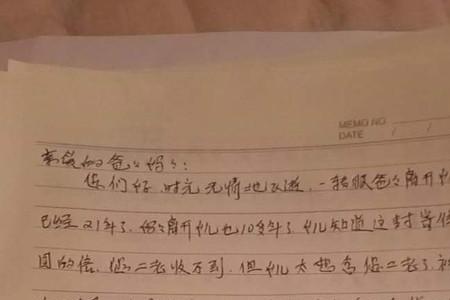 MEMO NO.
DATE / /
亲爱的爸爸妈妈:
你们好,时光无情地飞逝,一转眼爸爸离开
已经21年了,妈妈离开儿也10多年了,儿知道这封寄
国的信,您二老收不到,但儿太想念您二老了,